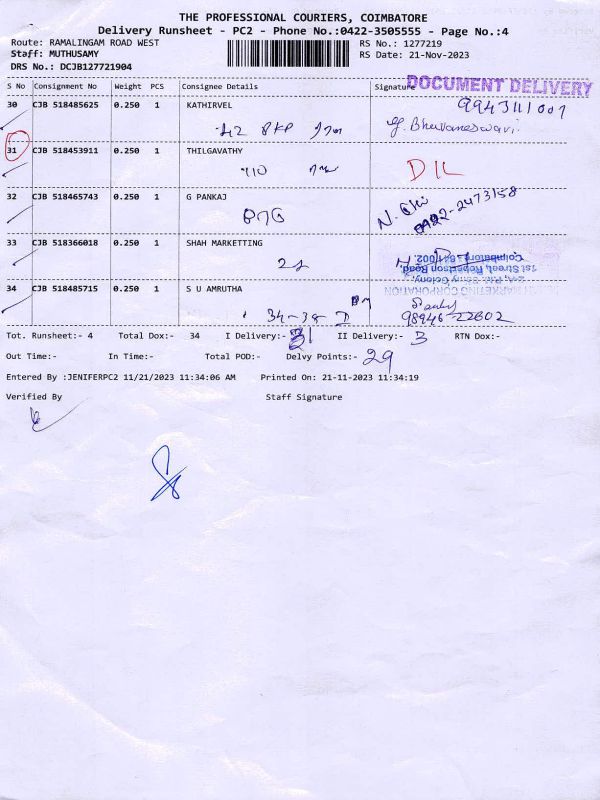 THE PROFESSIONAL COURIERS, COIMBATORE
Delivery Runsheet - PC2 - Phone No.:0422-3505555 - Page No.:4
Route: RAMALINGAM ROAD WEST RS No.: 1277219
Staff: MUTHUSAMY RS Date: 21-Nov-2023
DRS No.: DCJB127721904
S No Consignment No Weight PCS Consignee Details Signature DOCUMENT DELIVERY
30 CJB 518485625 0.250 1 KATHIRVEL 9943111007
42 Bhuvaneswari
31 CJB 518453911 0.250 1 THILGAVATHY
DIL
32 CJB 518465743 0.250 1 G PANKAJ
0422-2473158
33 CJB 518366018 0.250 1 SHAH MARKETTING
Coimbatore - 641 002.
1st Street, Robertson Road,
MARKETING CORPORATION
34 CJB 518485715 0.250 1 S U AMRUTHA
98946-22602
Tot. Runsheet:- 4 Total Dox:- 34 I Delivery:- 31 II Delivery:- 3 RTN Dox:-
Out Time:- In Time:- Total POD:- Delvy Points:- 29
Entered By :JENIFERPC2 11/21/2023 11:34:06 AM Printed On: 21-11-2023 11:34:19
Verified By Staff Signature